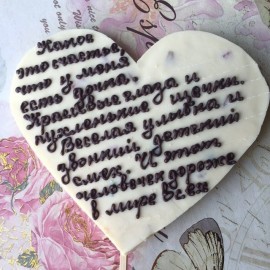 Какое
это счастье,
что у меня
есть дочка.
Красивые глаза и
пухленькие щечки.
Веселая улыбка и
звонкий детский
смех. И этот
человечек дороже
в мире всех